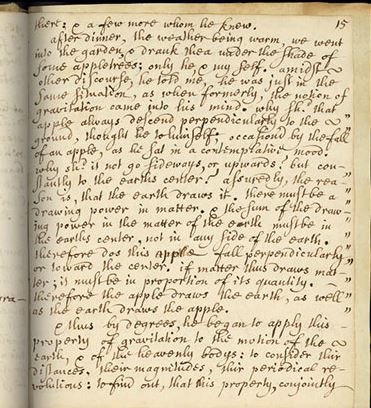 there: & a few more whom he knew. 15
after dinner, the weather being warm, we went
into the garden, & drank thea under the shade of
some appletrees; only he & my self. amidst
other discourse, he told me, he was just in the
same situation, as when formerly, the notion of
gravitation came into his mind. why sh.d that
apple always descend perpendicularly to the
ground, thought he to himself: occasion'd by the fall
of an apple, as he sat in a contemplative mood.
why sh.d it not go sideways, or upwards? but con-
stantly to the earths center? assuredly, the rea-
son is, that the earth draws it. there must be a
drawing power in matter. & the sum of the draw-
ing power in the matter of the earth must be in
the earths center, not in any side of the earth.
therefore dos this apple fall perpendicularly
or toward the center. if matter thus draws mat-
ter; it must be in proportion of its quantity.
therefore the apple draws the earth, as well
as the earth draws the apple.
& thus by degrees, he began to apply this
property of gravitation to the motion of the
earth, & of the heavenly bodys: to consider thir
distances, their magnitudes, thir periodical re-
volutions: to find out, that this property, conjointly